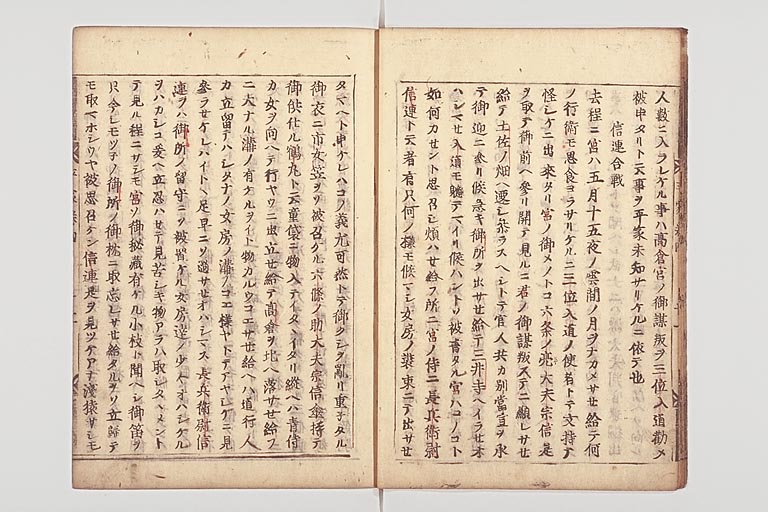 人数ニ入ラレケル事ハ高倉宮ノ御謀叛ヲ三位入道勧メ
被申タリト云事ヲ平家未知サリケルニ依テ也
信連合戦
去程ニ宮ハ五月十五夜ノ雲間ノ月ヲナカメサせ給テ何
ノ行衛モ思食ヨラサリケルニ三位入道ノ使者トテ文持テ
怪シケニ出来タリ宮ノ御メノトコ六条ノ亮大夫宗信是
ヲ取テ御前ヘ参リ開テ見ルニ君ノ御謀叛ステニ顕レサせ
給テ土佐ノ畑ヘ遷シ奈ラスヘシトテ官人共カ別當宣ヲ承
テ御迎ニ参リ候急キ御所ヲ出サせ給テ三井寺ヘイラせオ
ハシマせ入道モ軈テマイリ候ハントソ被書タル宮ハコノコト
如何カせント思召シ煩ハせ給フ所ニ宮ノ侍ニ長兵衛尉
信連ト云者有只何ノ様モ候マシ女房ノ装束ニテ出サせ
タマヘト申ケレハコノ義尤可然トテ御クシヲ乱リ重子タル
御衣ニ市女笠ヲソ被召ケル六條ノ助大夫宗信傘持テ
御供仕ル鶴丸ト云童袋ニ物入テイタヽイタリ縦ヘハ青侍
カ女ヲ向ヘテ行ヤウニ出立せ給テ高倉ヲ北ヘ落サせ給フ
ニ大ナル溝ノ有ケルヲイト物カルウコエサせ給ヘハ道行人
カ立留テハシタナノ女房ノ溝ノコエ様ヤトテアヤシケニ見
参ラサケレハイトヽ足早ニソ過サせオハシマス長兵衛尉信
連ヲハ御所ノ留守ニソ被置ケル女房達ノ少々オハシケル
ヲハカシコ爰ヘ立忍ハせテ見苦シキ物アラハ取シタヽメント
テ見ル程ニサシモ宮ノ御秘蔵有ケル小枝ト聞ヘシ御笛ヲ
只今シモツ子ノ御所ノ御枕ニ取忘レサせ給タルヲソ立帰テ
モ取マホシウヤ被思召ケン信連是ヲ見ツケアナ浅猿サシモ